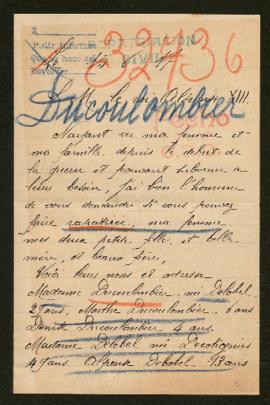 32436
Ducoulombier
N'ayant vu ma femme et
ma famille depuis le debut de
la guerre et pouvant subvenir a
leurs besoin, j'ai bien l'honneur
de vous demander si vous pouvez
faire rapatriée, ma femme
mes deux petite fille, et belle
mère, et beau frère,
Voici leurs noms et adresse
Madame Ducoulombier, né Delobel
29 ans, Marthe Ducoulombier, 6 ans
Denise Ducoulombier 4 ans.
Madame Delobel né
49 ans. Alfonse Delobel 13 ans